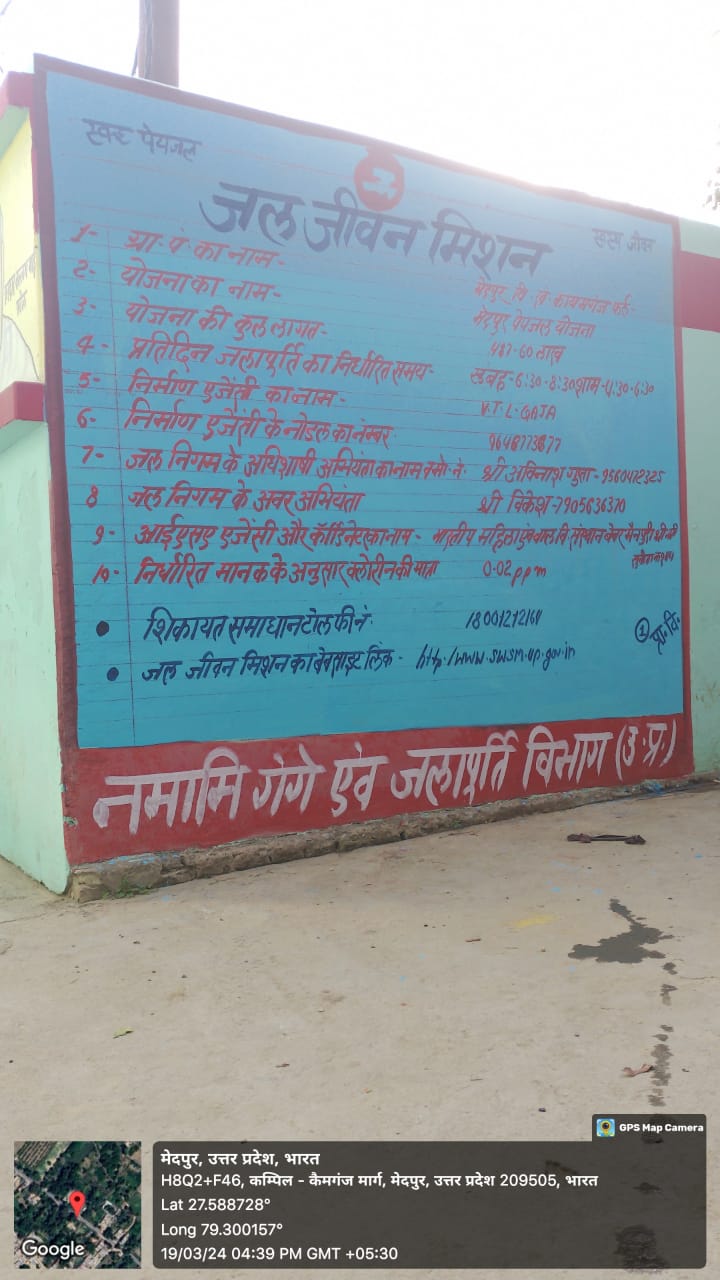 स्वच्छ पेयजल
जल जीवन मिशन
1- ग्रा॰ पं का नाम- मेदपुर वि॰ ख॰ कायमगंज फर्रु॰
2- योजना का नाम- मेदपुर पेयजल योजना
3- योजना की कुल लागत- 487-60 लाख
4- प्रतिदिन जलापूर्ति का निर्धारित समय- सुबह-6:30-8:30 शाम-4:30-6:30
5- निर्माण एजेंसी का नाम- V.T.L-GAJA
6- निर्माण एजेंसी के नोडल का नंबर 9648773877
7- जल निगम के अधिशाषी अभियंता का नाम व मो॰ नं॰ श्री अविनाश गुप्ता-9560472325
8 जल निगम के अवर अभियंता श्री विकेश-7905636370
9- आईएसए एजेंसी और कॉर्डिनेटर का नाम- भारतीय महिला एवं बाल वि॰ संस्थान
10- निर्धारित मानक के अनुसार क्लोरीन की मात्रा 0.02 ppm
• शिकायत समाधान टोल फ्री नं॰ 18001212164
• जल जीवन मिशन का बेवसाइट लिंक- http:/www.swsm.up.gov.in
① प्रा॰ वि॰
नमामि गंगे एंव जलापूर्ति विभाग (उ॰प्र॰)
GPS Map Camera
मेदपुर, उत्तर प्रदेश, भारत
H8Q2+F46, कम्पिल - कैमगंज मार्ग, मेदपुर, उत्तर प्रदेश 209505, भारत
Lat 27.588728°
Long 79.300157°
19/03/24 04:39 PM GMT +05:30
Google